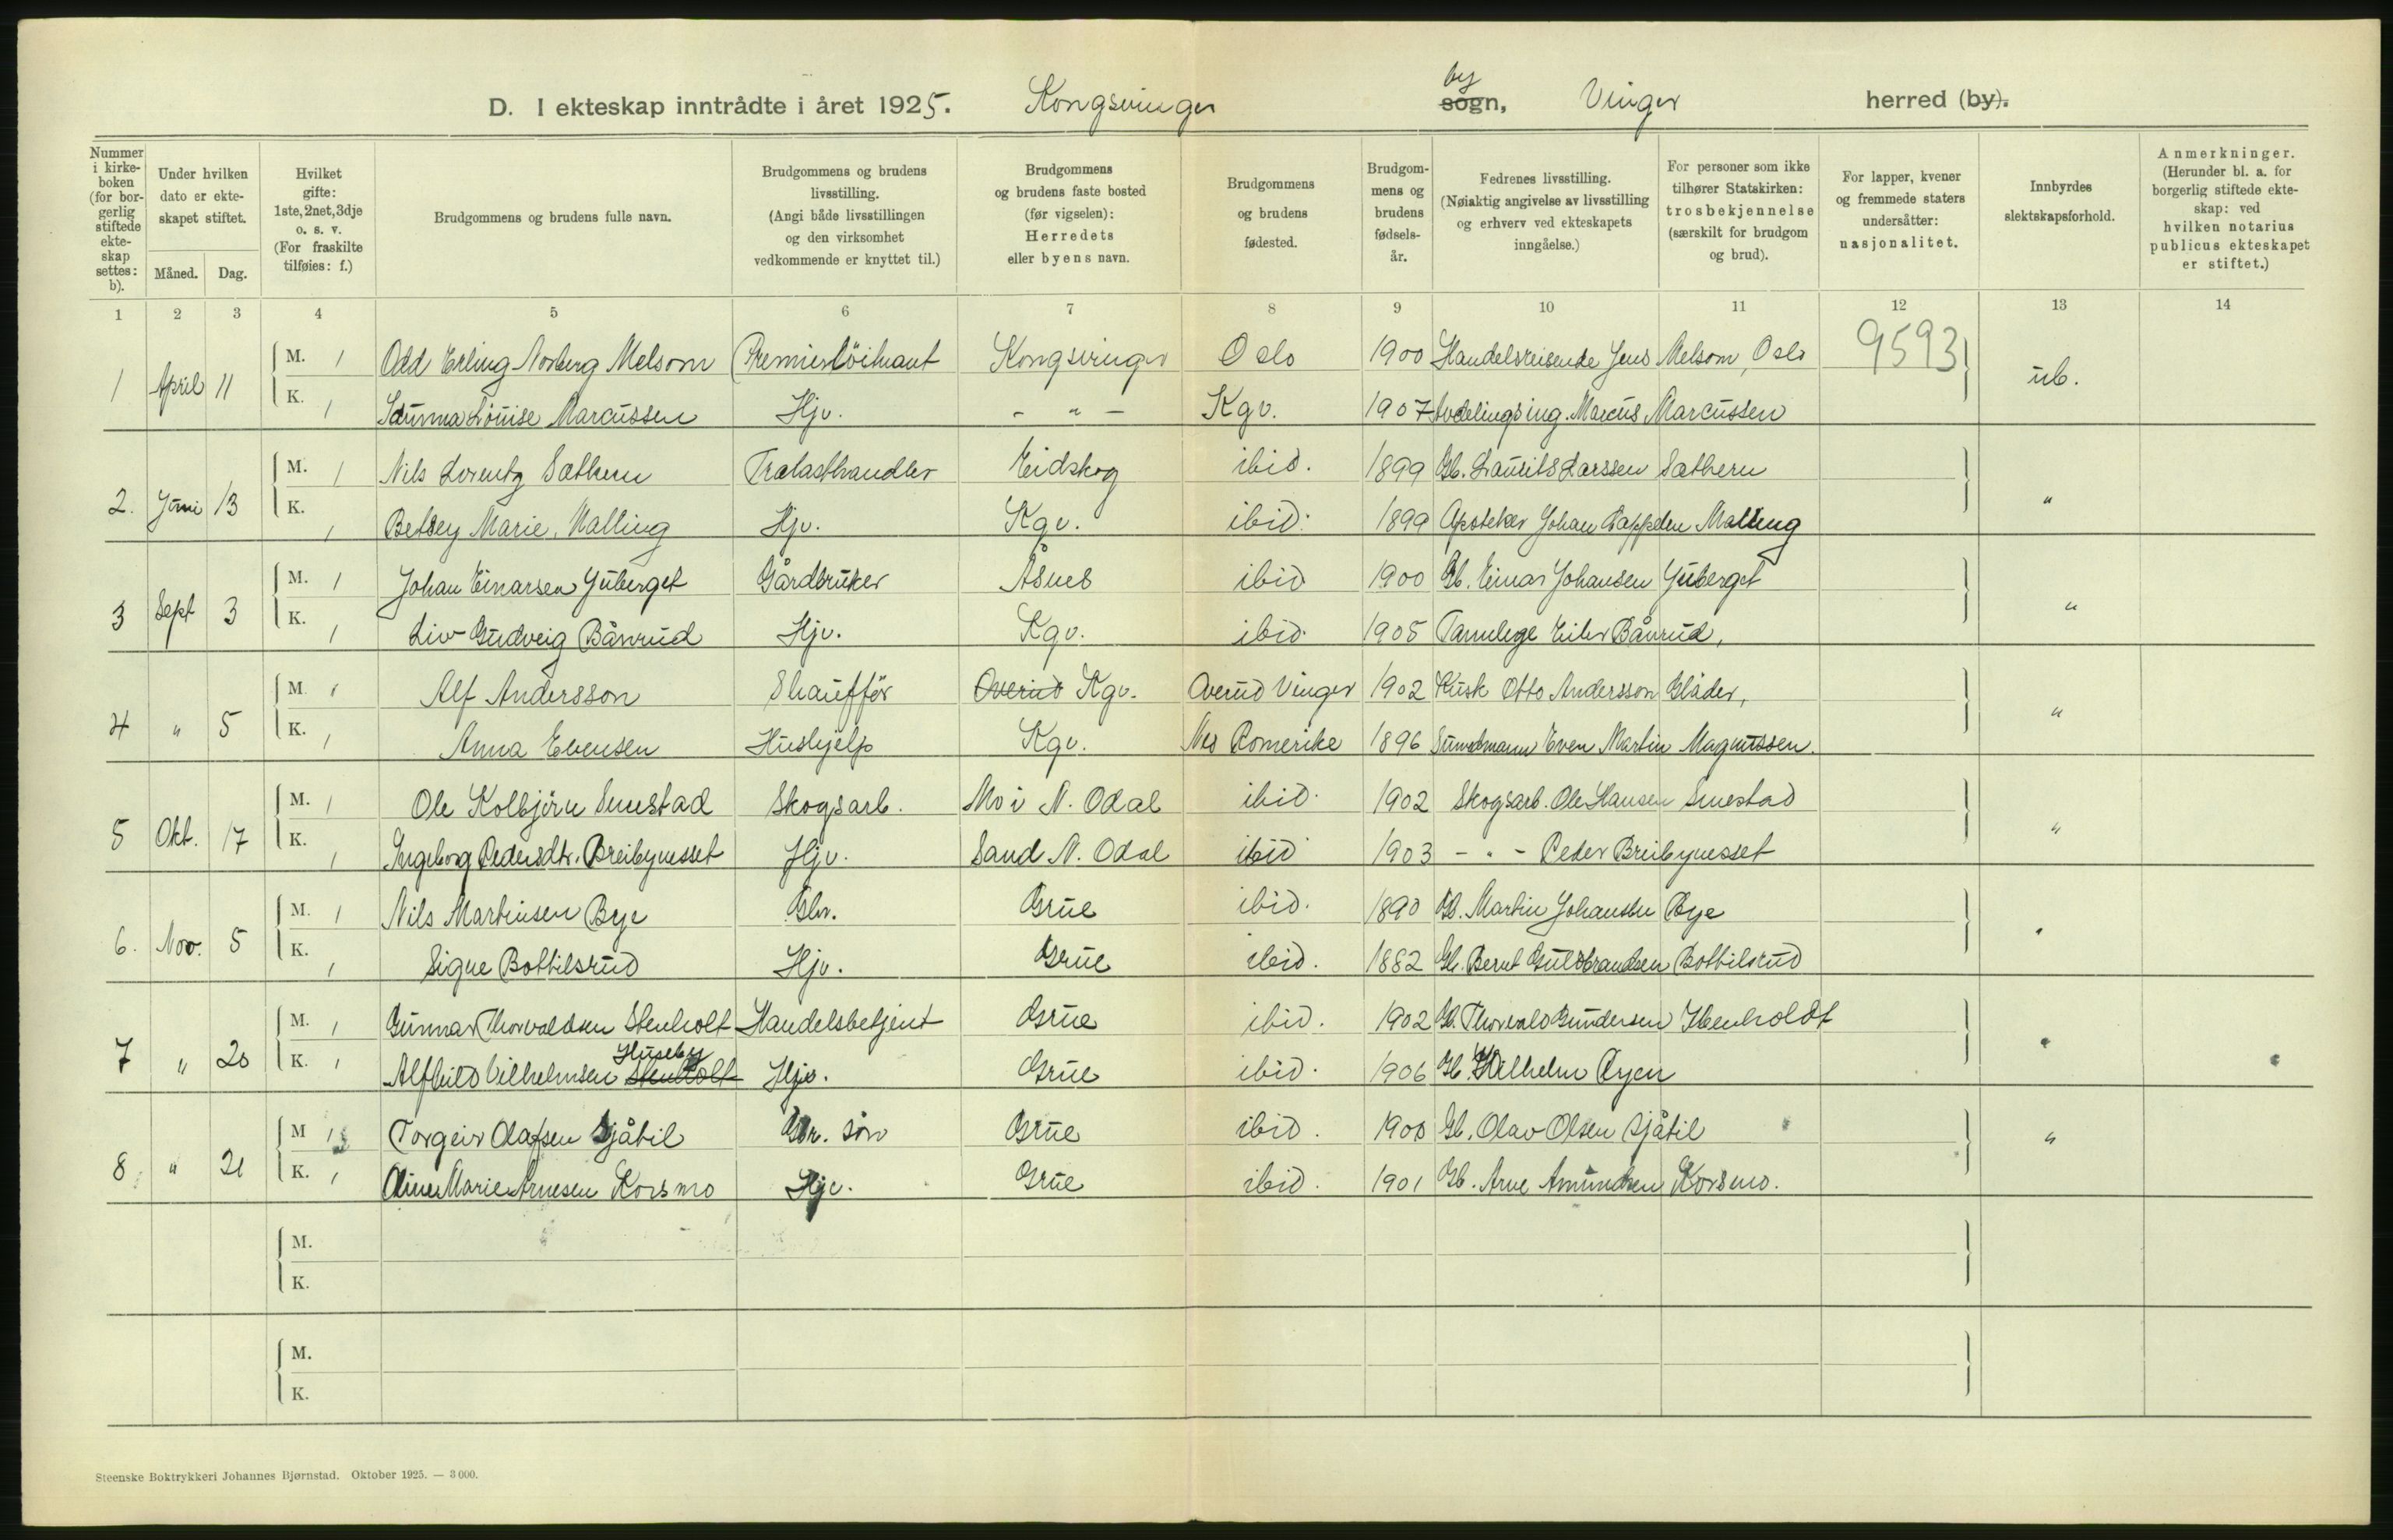 D. I ekteskap inntrådte i året 1925. Kongsvinger by sogn, Vinger herred (by).
Nummer i kirkeboken (for borgerlig stiftede ekteskap settes: b).
Under hvilken dato er ekteskapet stiftet.
Måned. Dag.
Hvilket gifte: 1ste, 2net, 3dje o. s. v. (For fraskilte tilføies: f.)
Brudgommens og brudens fulle navn.
Brudgommens og brudens livsstilling. (Angi både livsstillingen og den virksomhet vedkommende er knyttet til.)
Brudgommens og brudens faste bosted (før vigselen): Herredets eller byens navn.
Brudgommens og brudens fødested.
Brudgommens og brudens fødselsår.
Fedrenes livsstilling. (Nøiaktig angivelse av livsstilling og erhverv ved ekteskapets inngåelse.)
For personer som ikke tilhører Statskirken: trosbekjennelse (særskilt for brudgom og brud).
For lapper, kvener og fremmede staters undersåtter: nasjonalitet.
Innbyrdes slektskapsforhold.
Anmerkninger. (Herunder bl. a. for borgerlig stiftede ekteskap: ved hvilken notarius publicus ekteskapet er stiftet.)
1 2 3 4 5 6 7 8 9 10 11 12 13 14
1 April 11 M. 1 Odd Erling Norberg Melsom Premierløitnant Kongsvinger Oslo 1900 Handelsreisende Jens Melsom, Oslo 9593 ub.
K. 1 Louise Marcussen Hjv. - " - Kgv. 1907 Avdelingsing. Marcus Marcussen
2. Juni 13 M. 1 Nils Lorentz Sæthern Trælasthandler Eidskog ibid. 1899 Gb. Laurits Larssen Sæthern "
K. 1 Betsey Marie Malling Hjv. Kgv. ibid. 1899 Apoteker Johan Malling
3 Sept 3 M. 1 Johan Einarsen Juberget Gårdbruker Åsnes ibid 1900 Gb. Einar Johansen Juberget "
K. 1 Liv Gudveig Bånrud Hjv. Kgv. ibid. 1905 Tannlege Eilev Bånrud,
4 " 5 M. 1 Alf Andersson Shauffør Overud Kgv. Overud Vinger 1902 Kusk Otto Andersson Glåder, "
K. 1 Anna Evensen Hushjelp Kgv. Nes Romerike 1896 Sundmann Even Martin Magnussen.
5 Okt. 17 M. 1 Ole Kolbjørn Smestad Skogsarb. Mo i N. Odal ibid. 1902 Skogsarb. Ole Hansen Smestad "
K. 1 Ingeborg Pedersdtr. Breibynesset Hjv. Sand N. Odal ibid 1903 - " - Peder Breibynesset
6. Nov. 5 M. 1 Nils Martinsen Bye Gbr. Grue ibid. 1890 Gb. Martin Johansen Bye "
K. 1 Signe Bottilsrud Hjv. Grue ibid. 1882 Gb. Bernt Guldbrandsen Bottilsrud
7 " 20 M. 1 Gunnar Thorvaldsen Stenholt Handelsbetjent Grue ibid. 1902 Gb. Thorvald Gundersen Stenholdt "
K. 1 Alfhild Vilhelmsen Stenholt Huseby Hjv. Grue ibid. 1906 Gb. Vilhelm Øyen
8 " 21 M 1 Torgeir Olafsen Sjåtil Gbr. søn Grue ibid. 1900 Gb. Olav Olsen Sjåtil "
K. 1 Oline Marie Arnesen Korsmo Hjv. Grue ibid. 1901 Gb. Arne Amundsen Korsmo.
M.
K.
M.
K.
Steenske Boktrykkeri Johannes Bjørnstad. Oktober 1925. — 3000.